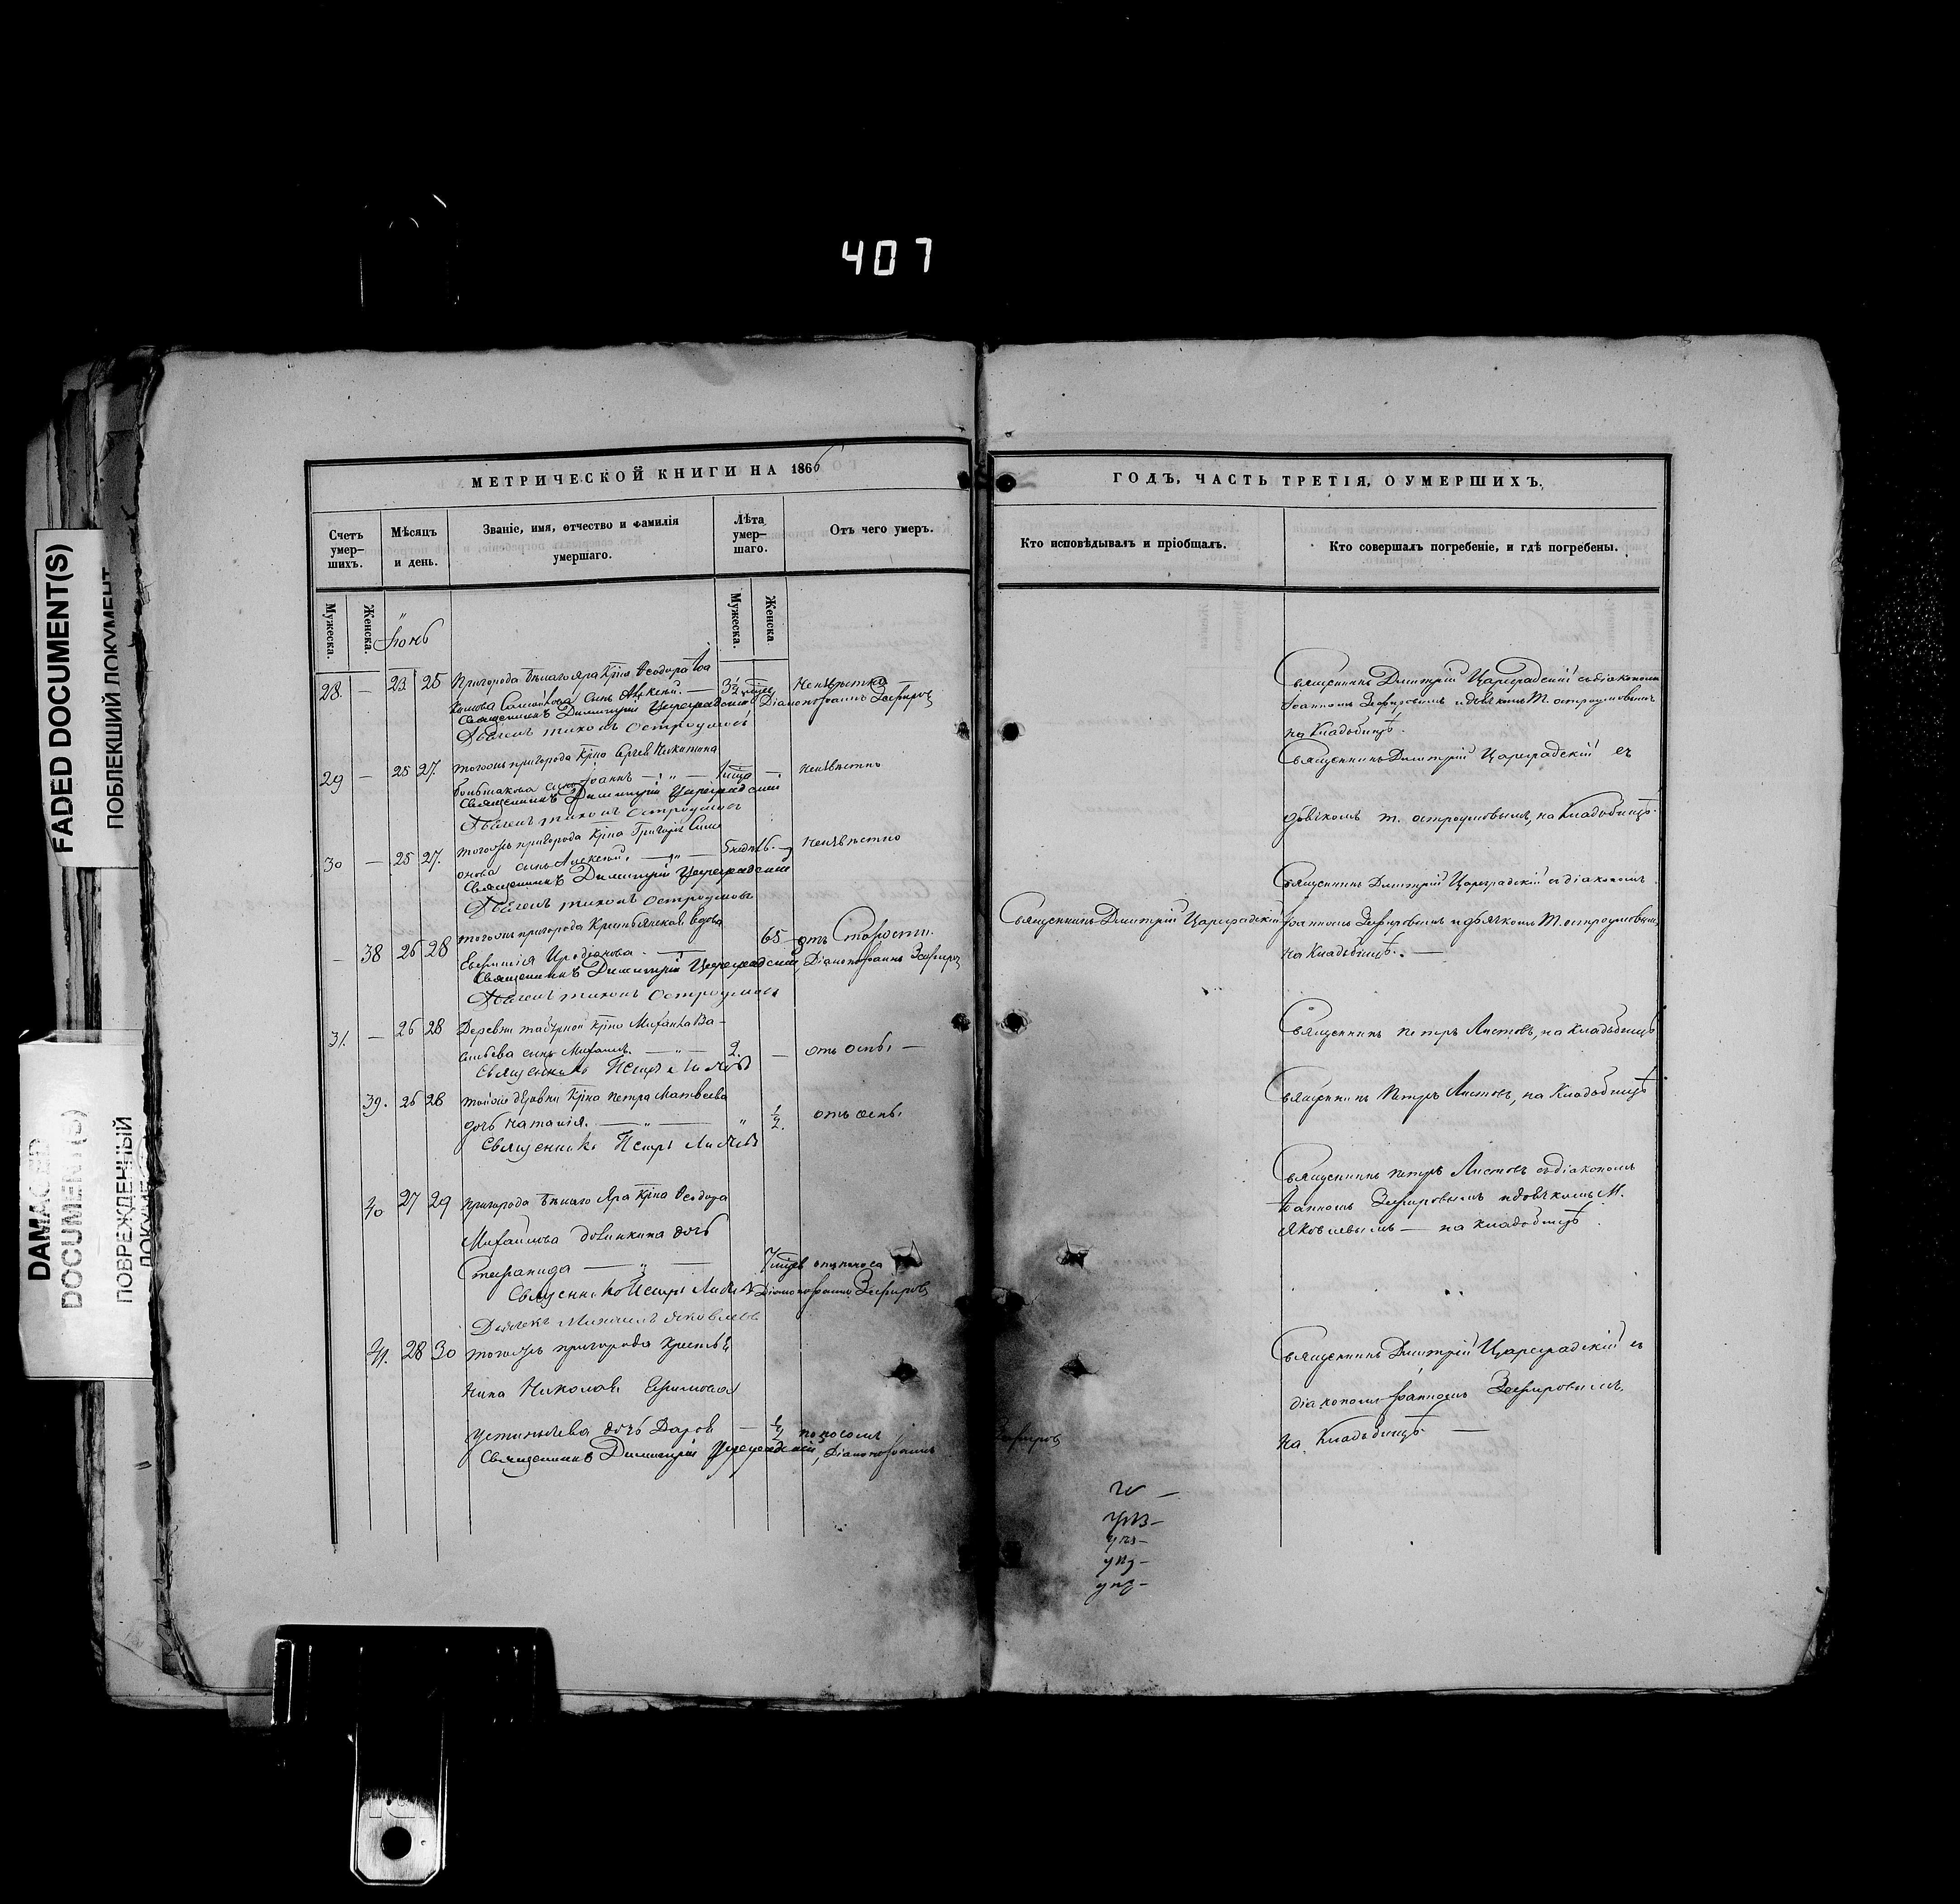 407
FADED DOCUMENT(S)
ПОБЛЕКШИЙ ДОКУМЕНТ
DAMAGED DOCUMENT(S)
ПОВРЕЖДЕННЫЙ ДОКУМЕ
МЕТРИЧЕСКОЙ КНИГИ НА 1866
Счетъ умер-шихъ.
Мѣсяцъ и день.
Званіе, имя, отчество и фамилія умершаго.
Лѣта умер-шаго.
Отъ чего умеръ.
Мужеска.
Женска.
Мужеска.
Женска
Іюнь
28. — 23 25 Пригорода Бѣлаго Яра Кр̃на Ѳеодора
сынъ 3½ Неизвѣстно
Священникъ Димитрій Цареградскій Діаконъ Іоаннъ Зефиров
Дьячекъ Тихонъ Остроумовъ
29 — 25 27. Тогожъ пригорода Кр̃на Сергѣя Никитина
Большакова сынъ Іоаннъ — „ — — Неизвѣстно
Священникъ Димитрій Цареградскій
Дьячекъ Тихонъ Остроумовъ
30 — 25 27. Тогожъ пригорода Кр̃на Григорія Симе
онова сынъ Алексій. — „ — 5 недѣль. — Неизвѣстно
Священникъ Димитрій Цареградскій
Дьячекъ Тихонъ Остроумовъ
— 38 26 28 Тогожъ пригорода Крестьянская вдова
Евфимія Иродіонова. — 65 — отъ Старости.
Священникъ Димитрій Цареградскій, Діаконъ Іоаннъ Зефиров
Дьячекъ Тихонъ Остроумовъ
31. — 26 28 Деревни Кр̃на Михаила Ва-
сильева сынъ Михаилъ. — „ — 2. — отъ оспы —
Священникъ Петръ Листовъ
39. 26 28 Тойже деревни Кр̃на Петра Матвѣева
дочь Наталія. — „ — „ ½. отъ оспы.
Священникъ Петръ Листовъ
40 27 29 Пригорода Бѣлаго Яра Кр̃на Ѳеодора
Михайлова дочь
Стефанида — „ — 7 отъ поноса
Священникъ Петръ Листовъ Діаконъ Іоаннъ Зефировъ
Дьячекъ Михаилъ Яковлевъ
41. 28 30 Тогожъ пригорода Крестья
нина Николая Ефимова
Устинычева дочь Дарья — ½ поносомъ
Священникъ Димитрій Цареградскій, Діаконъ Іоаннъ Зефиров
ГОДЪ, ЧАСТЬ ТРЕТІЯ, О УМЕРШИХЪ.
Кто исповѣдывалъ и пріобщалъ.
Кто совершалъ погребеніе, и гдѣ погребены.
Священникъ Дмитрій Цареградскій съ діакономъ
Іоанномъ Зефировымъ и дьячкомъ Т. Остроумовымъ
на Кладбищѣ.
Священникъ Дмитрій Цареградскій съ
дьячкомъ Т. Остроумовымъ, на Кладбищѣ.
Священникъ Дмитрій Цареградскій съ діакономъ
Священникъ Дмитрій Цареградскій
Іоанномъ Зефировымъ и дьячкомъ Т. Остроумовымъ,
на Кладбищѣ. —
Священникъ Петръ Листовъ, на Кладбищѣ
Священникъ Петръ Листовъ, на Кладбищѣ
Священникъ Петръ Листовъ съ діакономъ
Іоанномъ Зефировымъ и дьячкомъ М.
Яковлевымъ — на кладбищѣ.
Священникъ Дмитрій Цареградскій съ
діакономъ Іоанномъ Зефировымъ.
На Кладбищѣ —